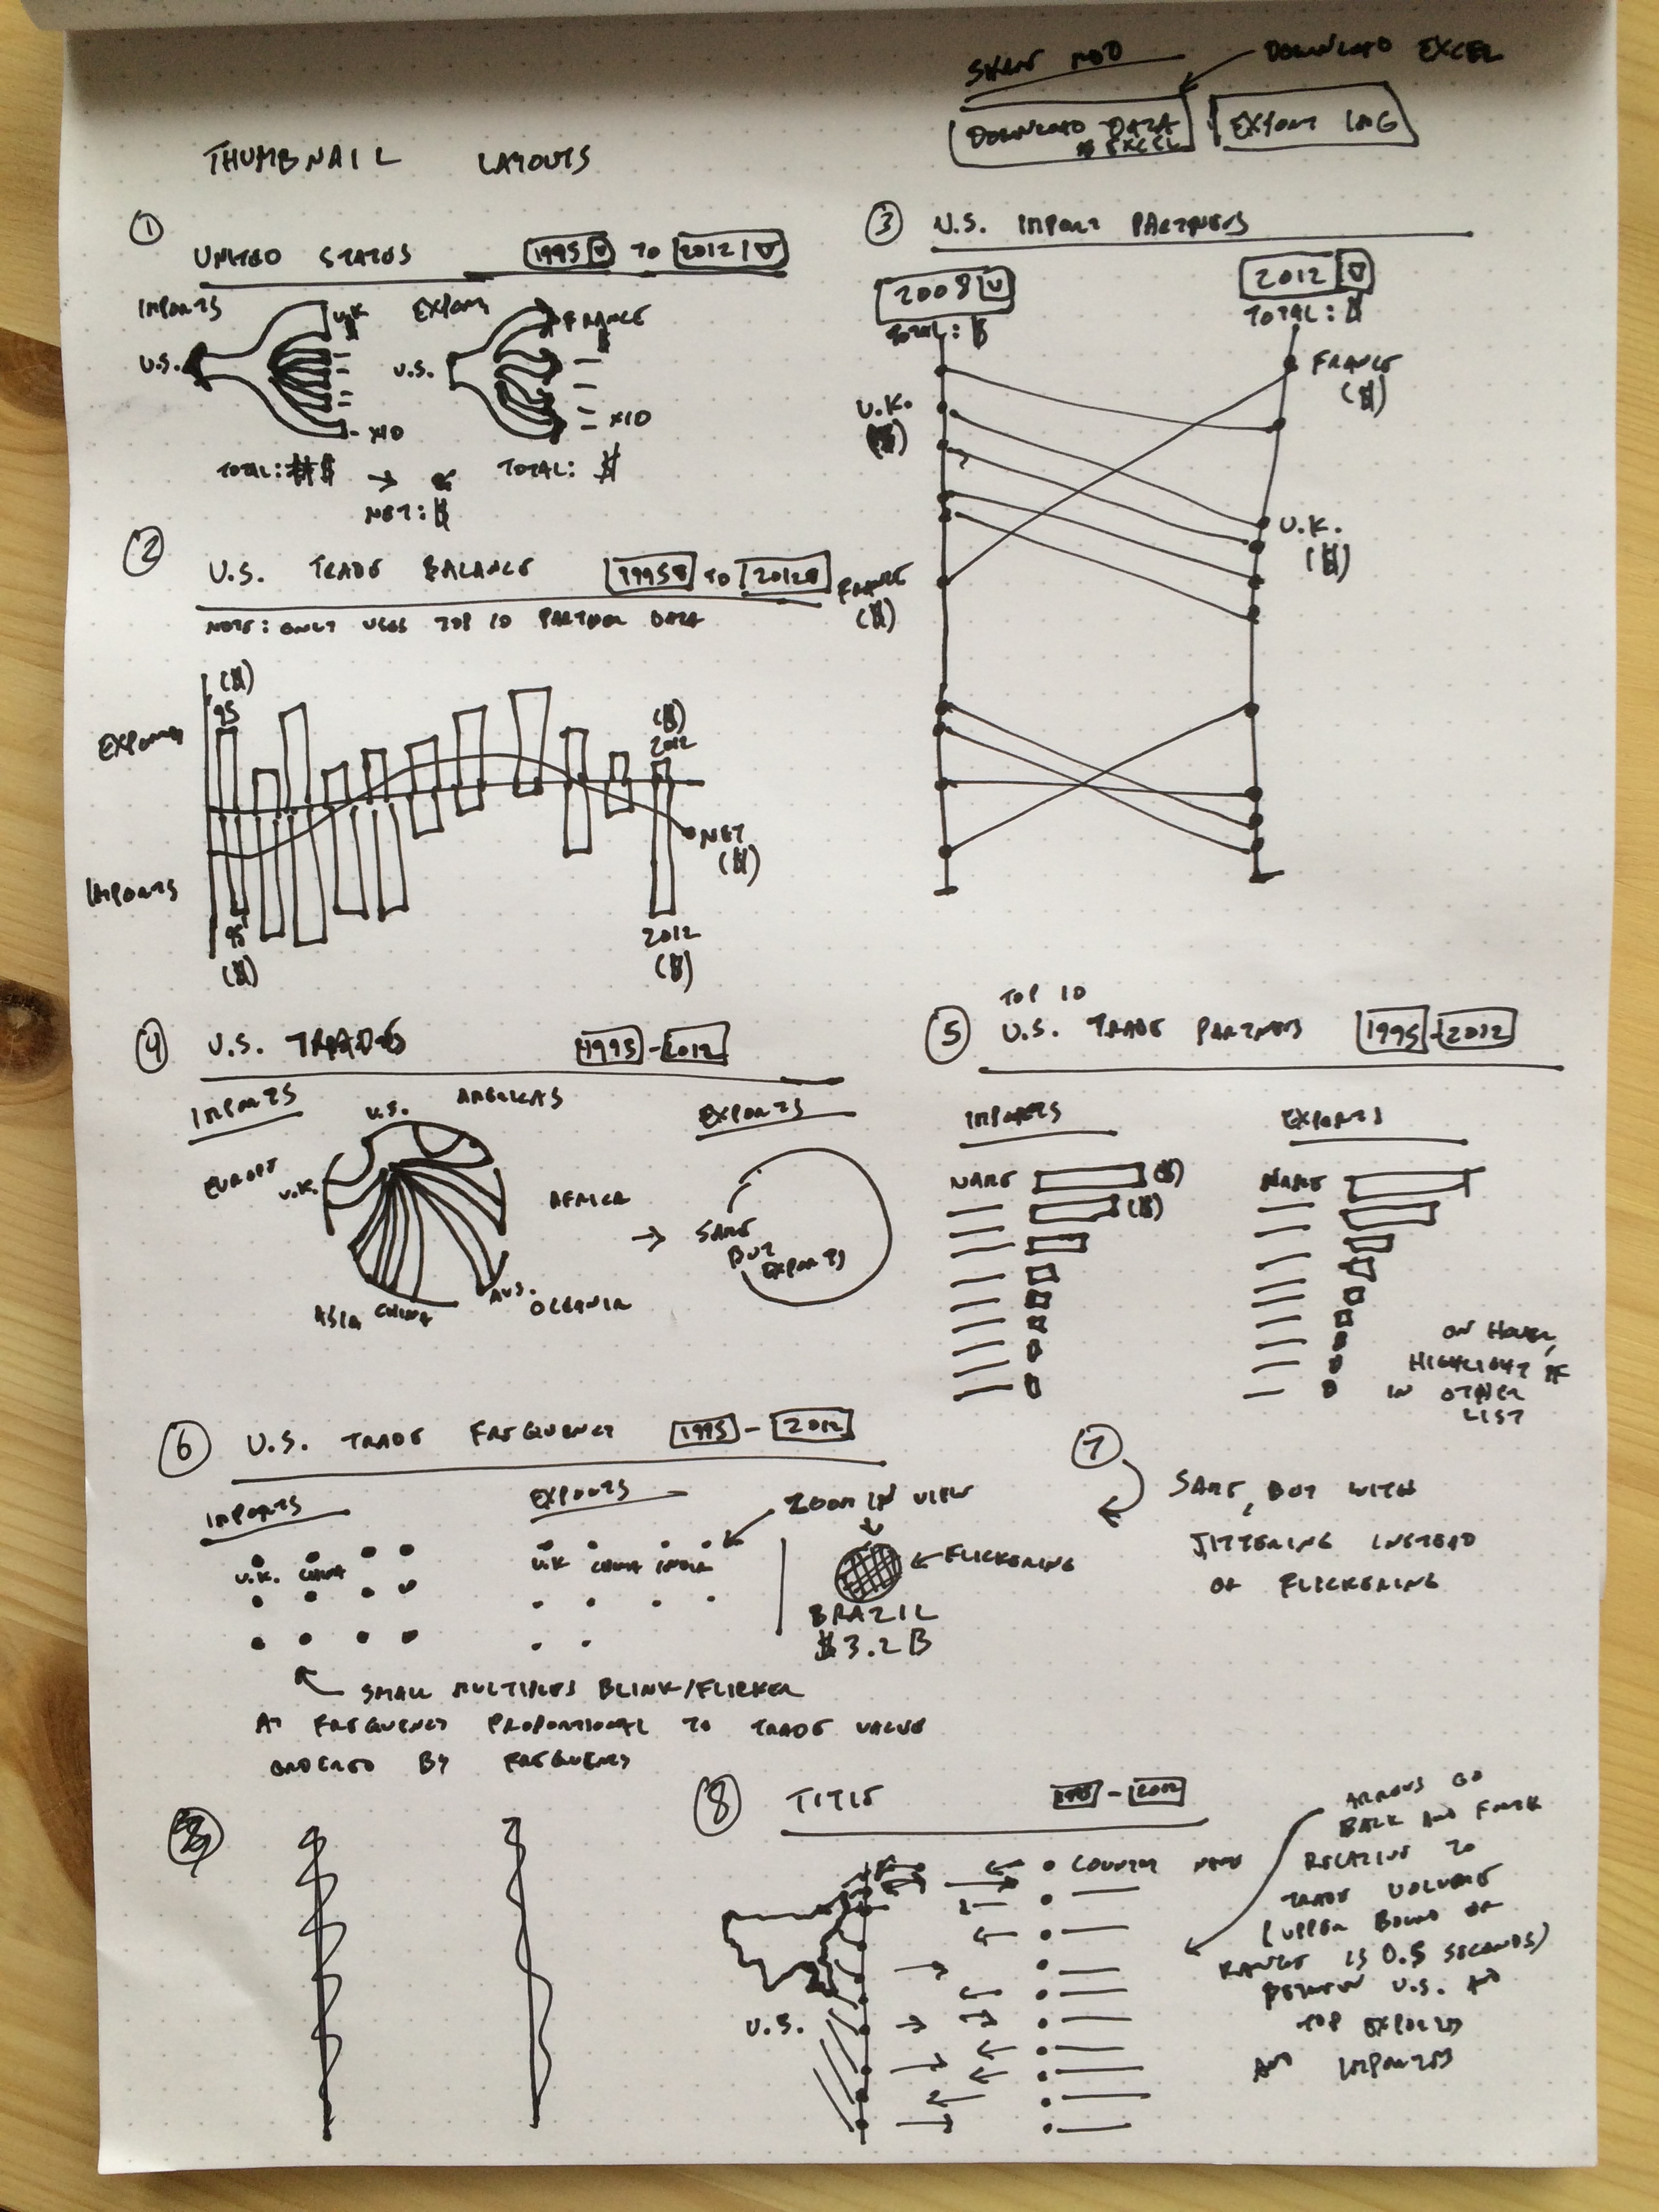 DOWNLOAD EXCEL
DOWNLOAD DATA
EXCEL
EXPORT IMG
THUMBNAIL LAYOUTS
1
UNITED STATES 1995 TO 2012
IMPORTS
EXPORTS
U.S.
U.K
X10
U.S.
FRANCE
$
X10
TOTAL: $
TOTAL: $
NET: $
2
U.S. TRADE BALANCE 1995 TO 2012
NOTE: ONLY USES TOP 10 PARTNER DATA
EXPORTS
IMPORTS
($)
95
($)
2012
NET
($)
95
($)
2012
($)
3
U.S. IMPORT PARTNERS
2008
TOTAL: $
2012
TOTAL: $
U.K.
($)
FRANCE
($)
FRANCE
($)
U.K.
($)
4
U.S. TRADE 1995 - 2012
IMPORTS
U.S.
AMERICAS
EUROPE
U.K.
AFRICA
ASIA
CHINA
AUS.
OCEANIA
EXPORTS
SAME
BUT
EXPORTS
5
TOP 10
U.S. TRADE PARTNERS 1995 - 2012
IMPORTS
NAME ($)
($)
EXPORTS
NAME
ON HOVER,
HIGHLIGHT IF
IN OTHER
LIST
6
U.S. TRADE FREQUENCY 1995 - 2012
IMPORTS
U.K. CHINA
EXPORTS
U.K CHINA INDIA
ZOOM IN VIEW
FLICKERING
BRAZIL
$3.2B
SMALL MULTIPLES BLINK/FLICKER
AT FREQUENCY PROPORTIONAL TO TRADE VALUE
ORDERED BY FREQUENCY
7
SAME, BUT WITH
JITTERING INSTEAD
OF FLICKERING
8
TITLE 1995 - 2012
COUNTRY NAME
U.S.
ARROWS GO
BACK AND FORTH
RELATIVE TO
TRADE VOLUME
(UPPER BOUND OF
RANGE IS 0.5 SECONDS)
BETWEEN U.S. AND
TOP EXPORTS
AND IMPORTS